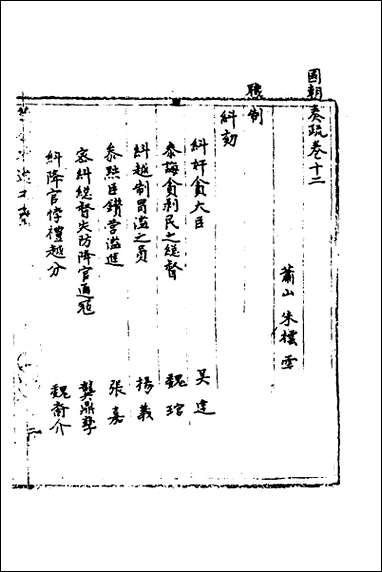 國朝奏疏卷十二
蕭山 朱櫄 雪
職制
糾劾
糾奸貪大臣 吴達
泰誨貪剥民之總督 魏琯
糾越制冒濫之員 楊義
叅㸃臣鑽营濫進 張嘉
密糾總督失防降官通冦 龔鼎孳
糾降官悖禮越分 魏裔介